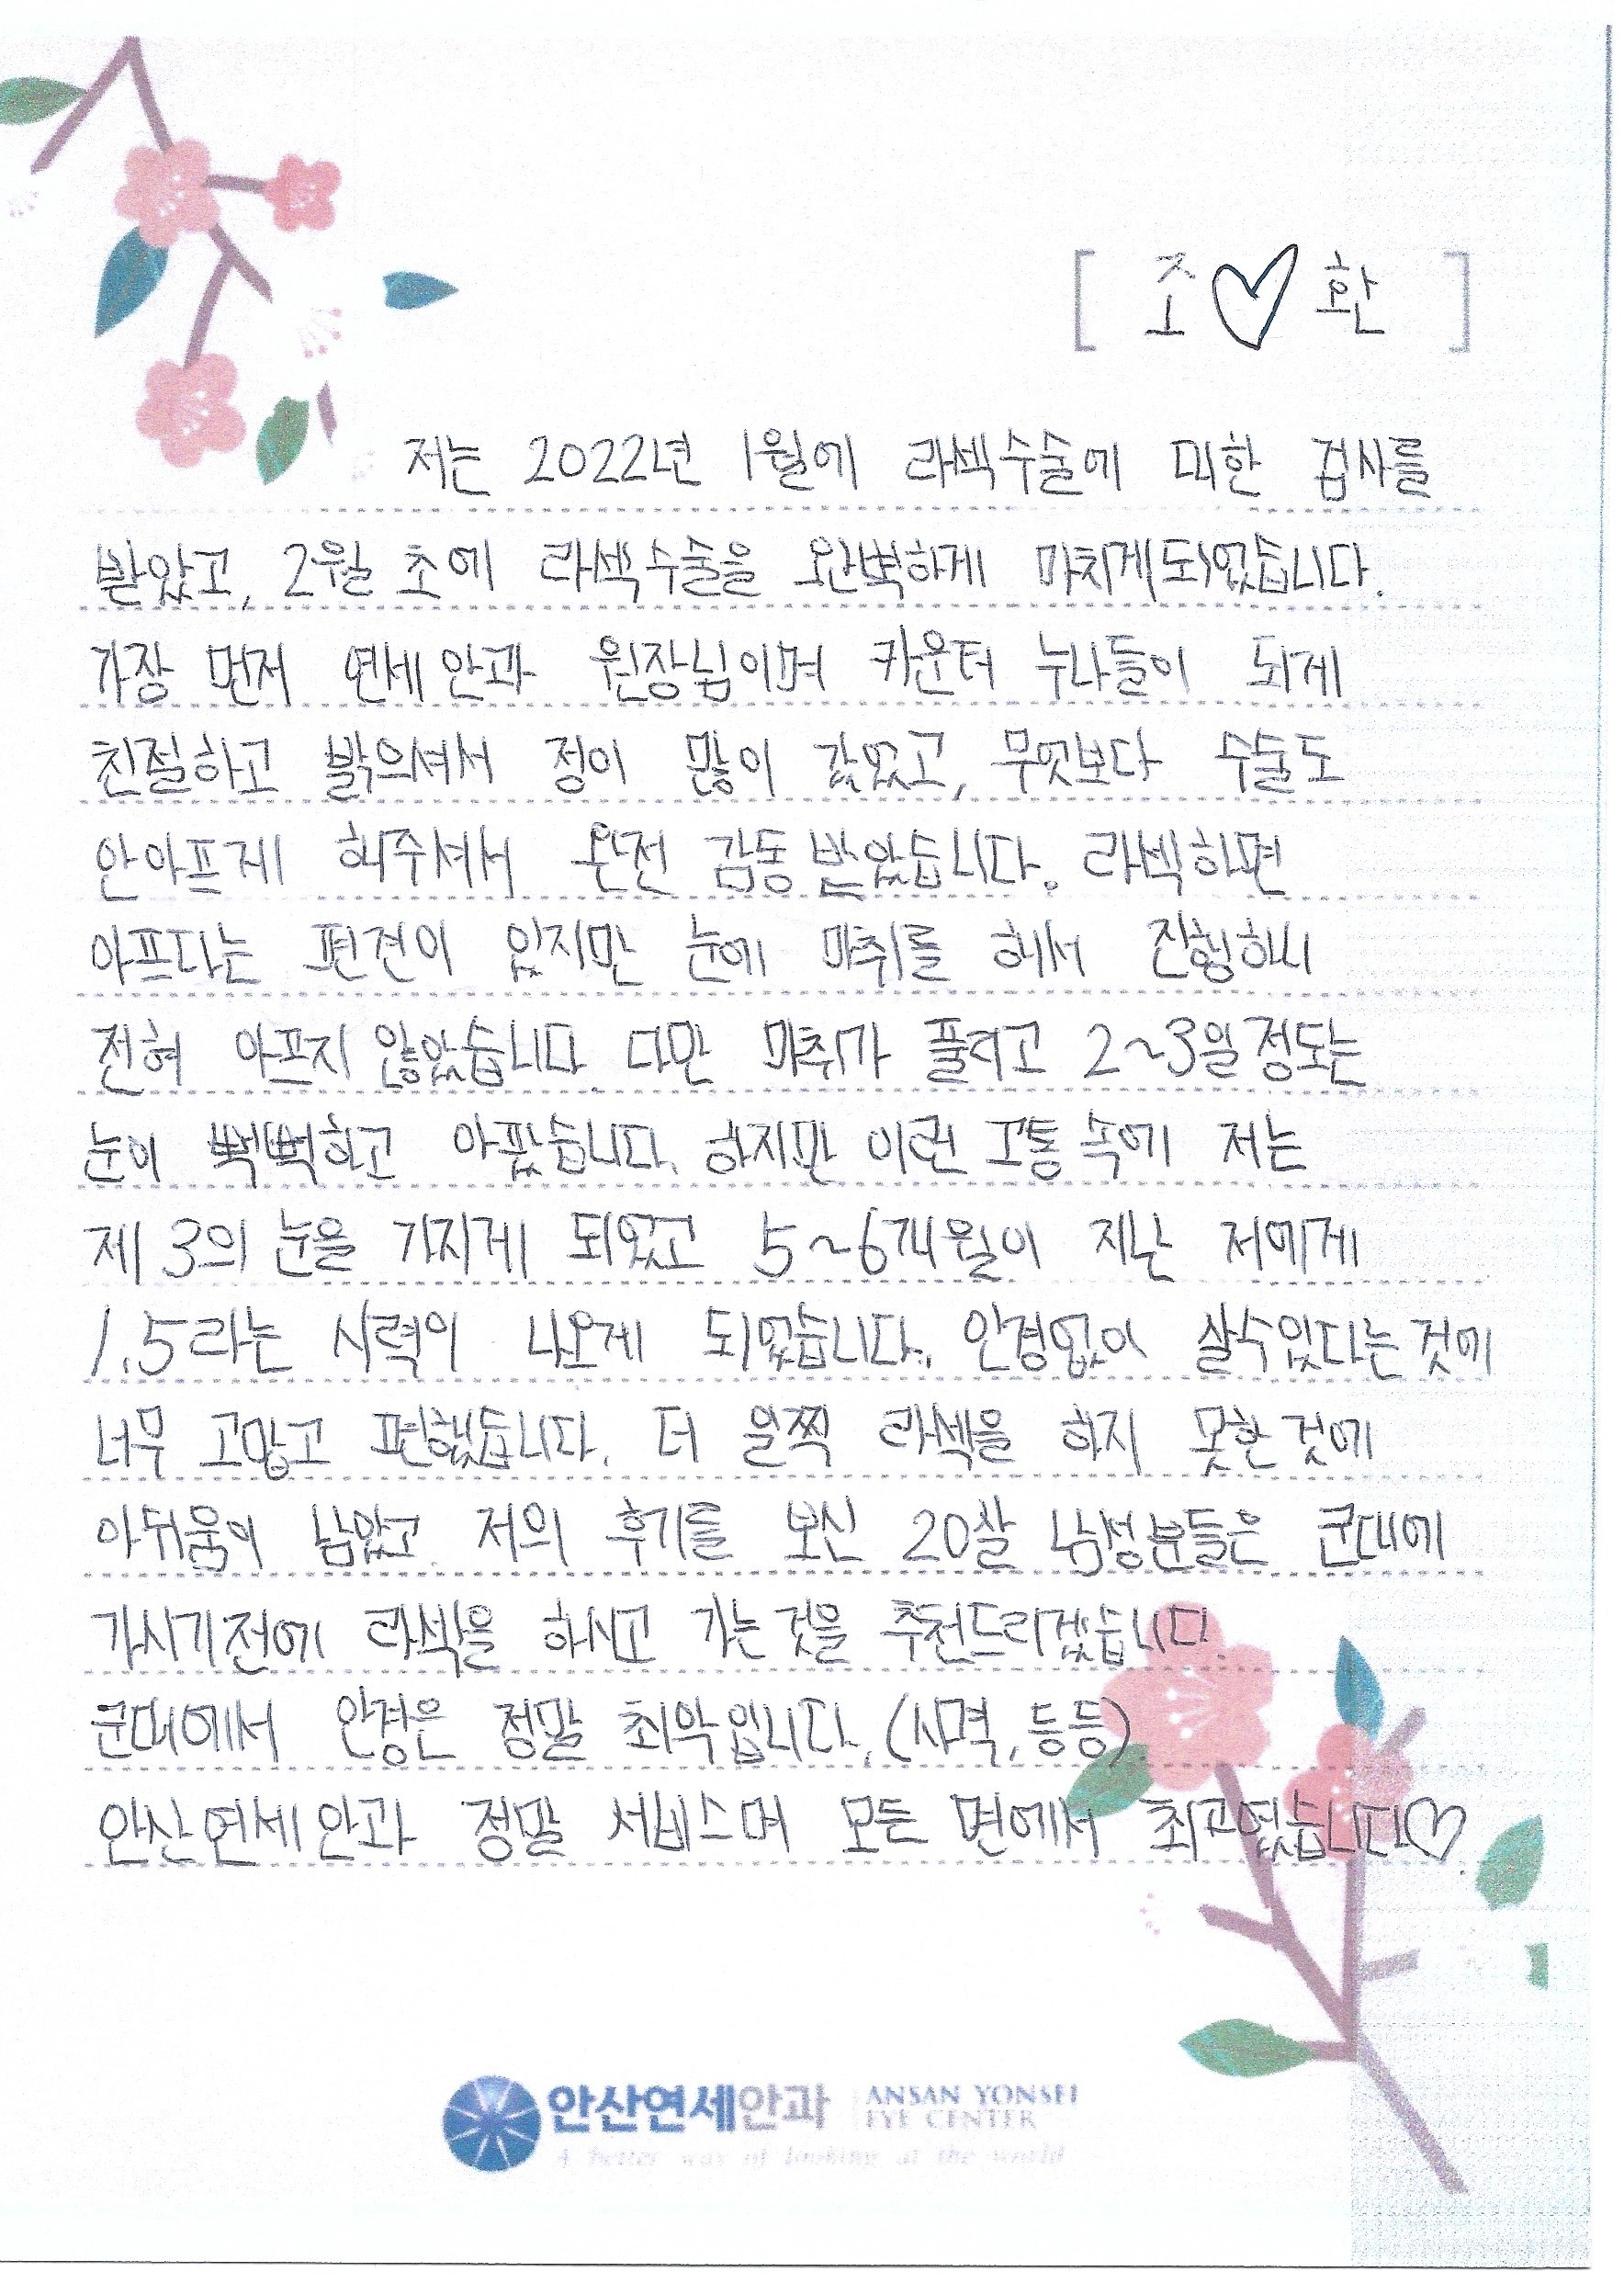 [ 조♡환 ]
저는 2022년 1월에 라섹수술에 대한 검사를
받았고, 2월 초에 라섹수술을 완벽하게 마치게되었습니다.
가장 먼저 연세안과 원장님이며 카운터 누나들이 되게
친절하고 밝으셔서 정이 많이 갔었고, 무엇보다 수술도
안아프게 해주셔서 완전 감동받았습니다. 라섹하면
아프다는 편견이 있지만 눈에 마취를 해서 진행하니
전혀 아프지 않았습니다. 다만 마취가 풀리고 2~3일정도는
눈이 뻑뻑하고 아팠습니다. 하지만 이런 고통 속에 저는
제 3의 눈을 가지게 되었고 5~6개월이 지난 저에게
1.5라는 시력이 나오게 되었습니다. 안경없이 살수있다는것에
너무 고맙고 편했습니다. 더 일찍 라섹을 하지 못한것에
아쉬움이 남았고 저의 후기를 보신 20살 남성분들은 군대에
가시기전에 라섹을 하시고 가는것을 추천드리겠습니다.
군대에서 안경은 정말 최악입니다.(사격,등등)
안산연세안과 정말 서비스며 모든 면에서 최고였습니다♡.
안산연세안과 ANSAN YONSEI
EYE CENTER
A better way of looking at the world